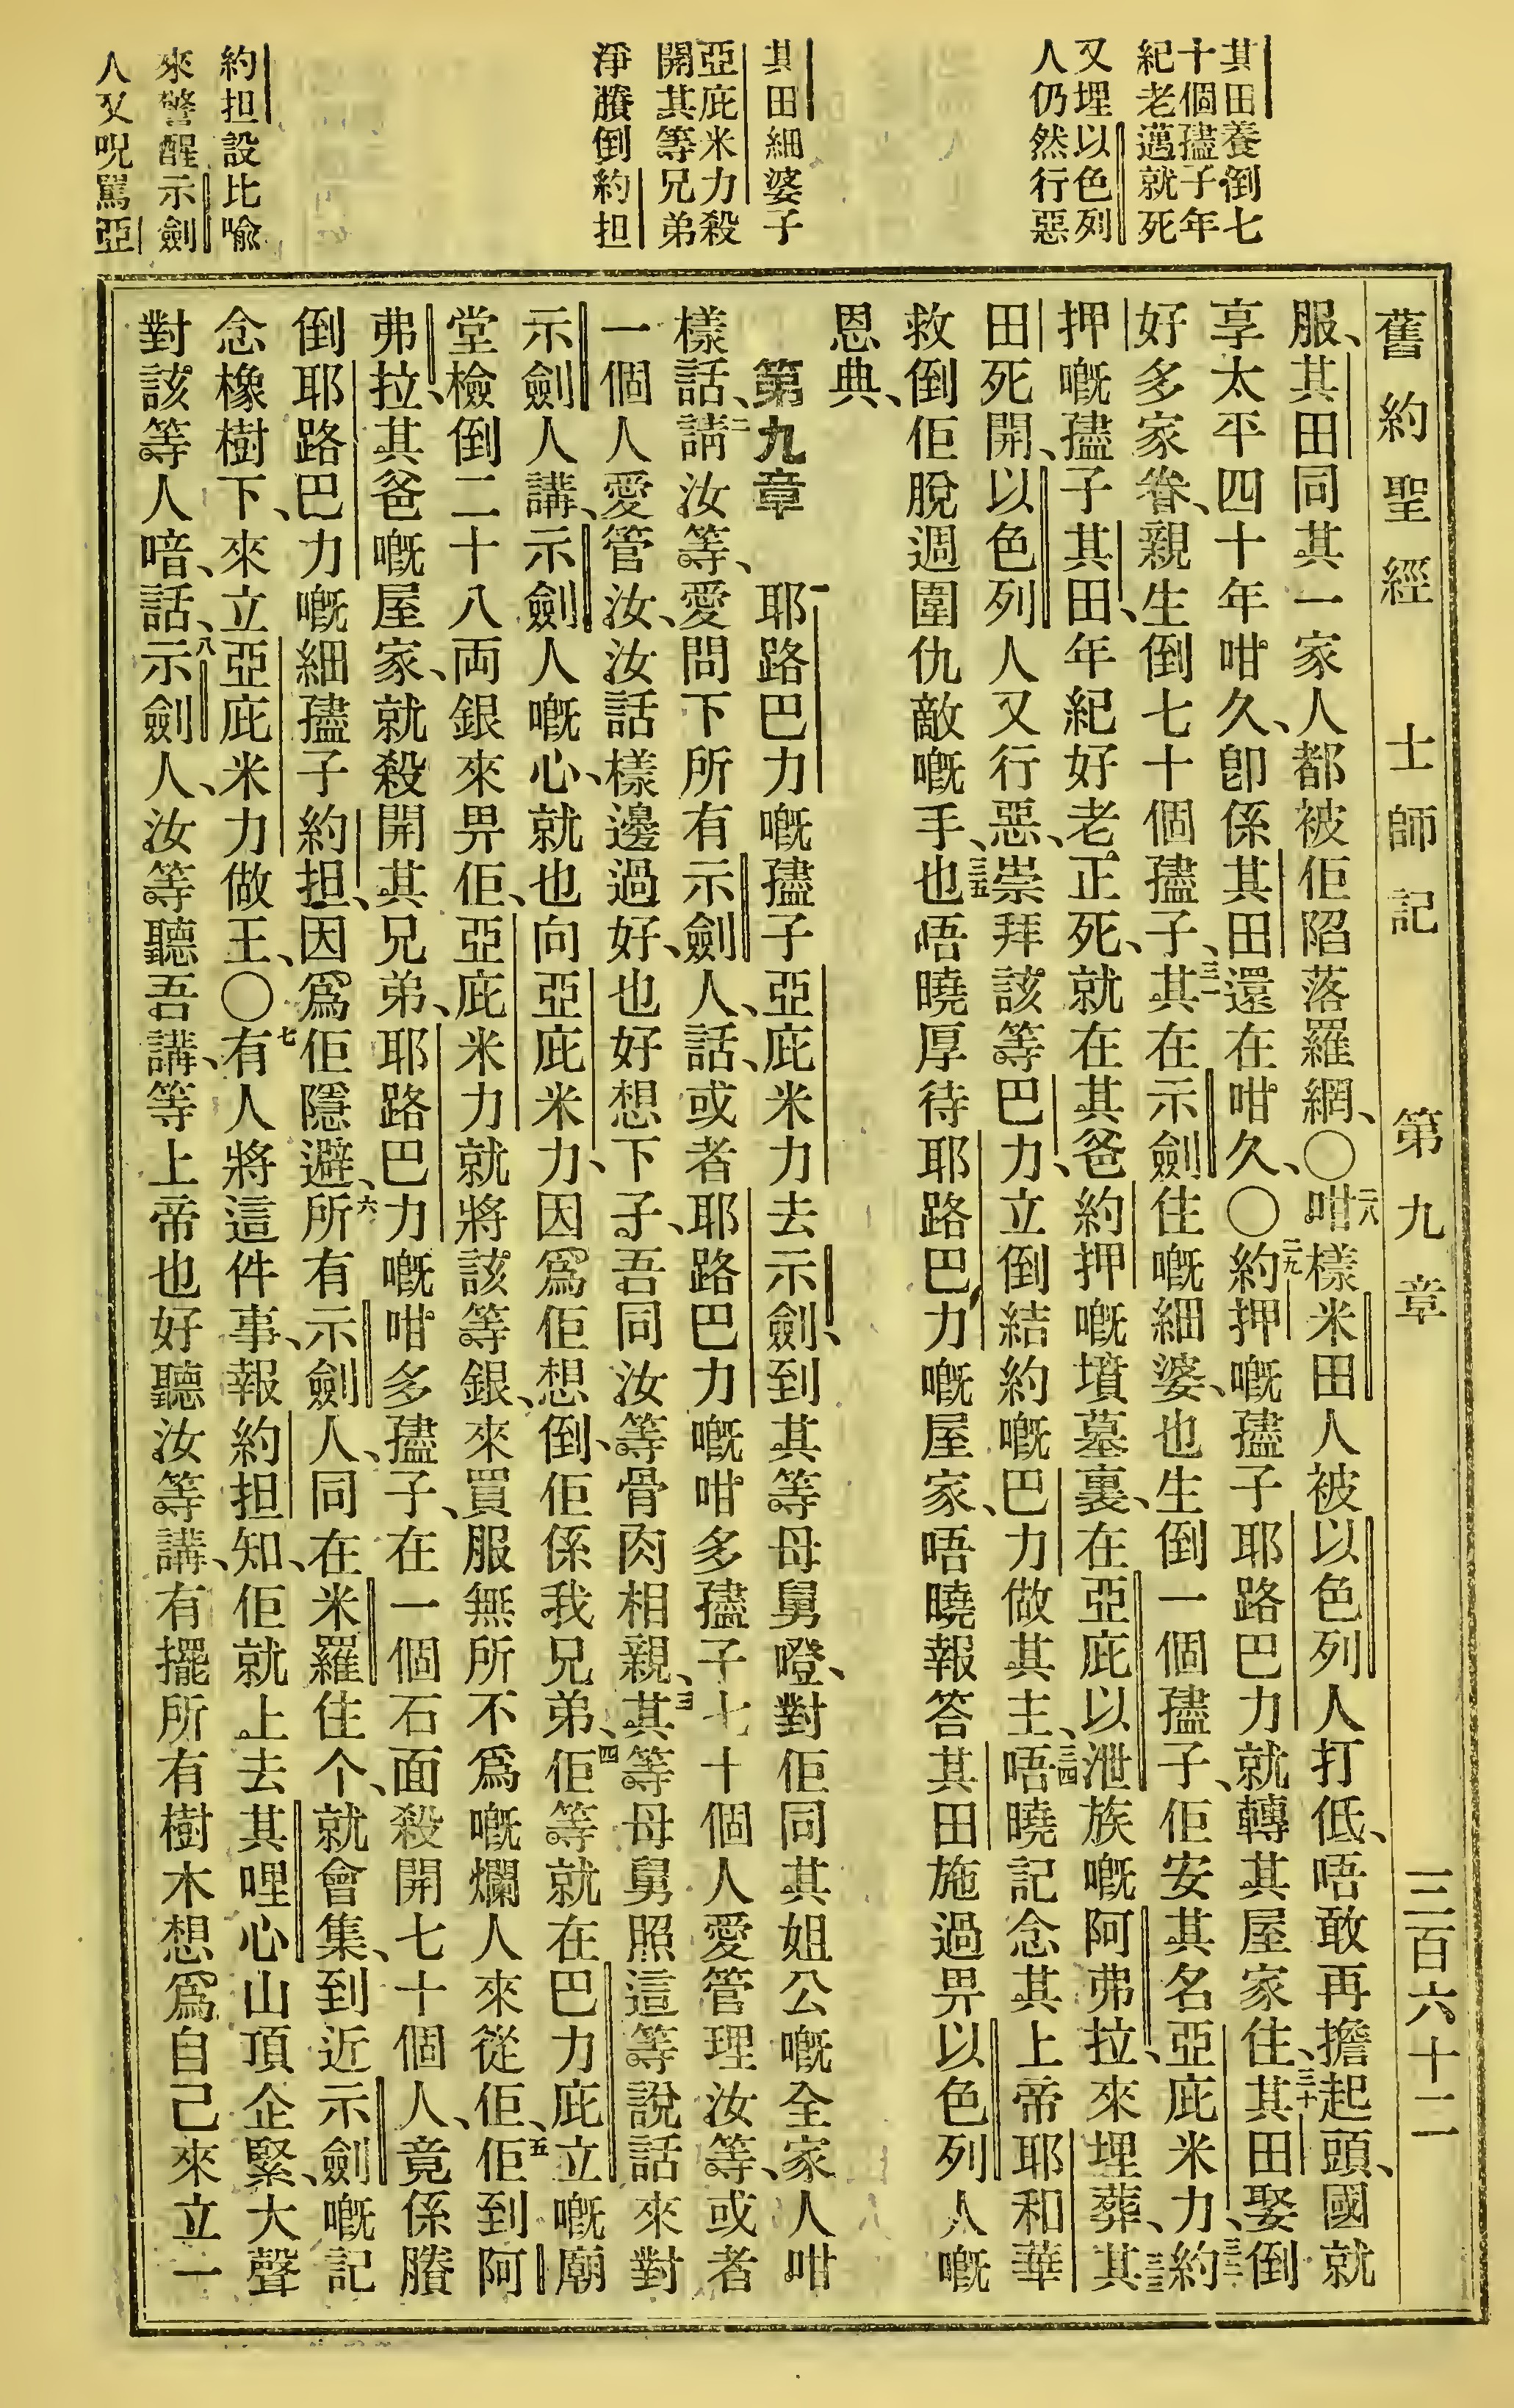 舊約聖經 士師記 第九章 三百六十二
其田養倒七
十個孻子年
紀老邁就死
又埋以色列
人仍然行惡
其田細婆子
亞庇米力殺
開其等兄弟
淨賸倒約担
約担設比喻
來警醒示劍
人又呪駡亞
服、其田同其一家人都被佢陷落羅網、〇二八咁樣米田人被以色列人打低、唔敢再擔起頭、國就
享太平四十年咁久、卽係其田還在咁久、〇二九約押嘅孻子耶路巴力就轉其屋家住、三十其田娶倒
好多家眷、親生倒七十個孻子、三一其在示劍住嘅細婆、也生倒一個孻子、佢安其名亞庇米力、三二約
押嘅孻子其田、年紀好老正死、就在其爸約押嘅墳墓裏、在亞庇以泄族嘅阿弗拉、來埋葬、三三其
田死開、以色列人又行惡、崇拜該等巴力、立倒結約嘅巴力做其主、三四唔曉記念其上帝耶和華
救倒佢脫週圍仇敵嘅手、三五也唔曉厚待耶路巴力嘅屋家、唔曉報答其田施過畀以色列人嘅
恩典、
第九章 一耶路巴力嘅孻子亞庇米力去示劍、到其等母舅嶝、對佢同其姐公嘅全家人咁
樣話、二請汝等、愛問下所有示劍人、話、或者耶路巴力嘅咁多孻子七十個人愛管理汝等、或者
一個人愛管汝、汝話樣邊過好、也好想下子、吾同汝等骨肉相親、三其等母舅照這等說話來對
示劍人講、示劍人嘅心、就也向亞庇米力、因爲佢想倒、佢係我兄弟、四佢等就在巴力庇立嘅廟
堂檢倒二十八両銀來畀佢、亞庇米力就將該等銀、來買服無所不爲嘅爛人來從佢、五佢到阿
弗拉、其爸嘅屋家、就殺開其兄弟、耶路巴力嘅咁多孻子、在一個石面殺開七十個人、竟係賸
倒耶路巴力嘅細孻子約担、因爲佢隱避、六所有示劍人、同在米羅住个、就會集、到近示劍嘅記
念橡樹下、來立亞庇米力做王、〇七有人將這件事、報約担知、佢就上去其哩心山頂企緊、大聲
對該等人喑、話、八示劍人、汝等聽吾講、等上帝也好聽汝等講、有擺所有樹木想爲自己來立一